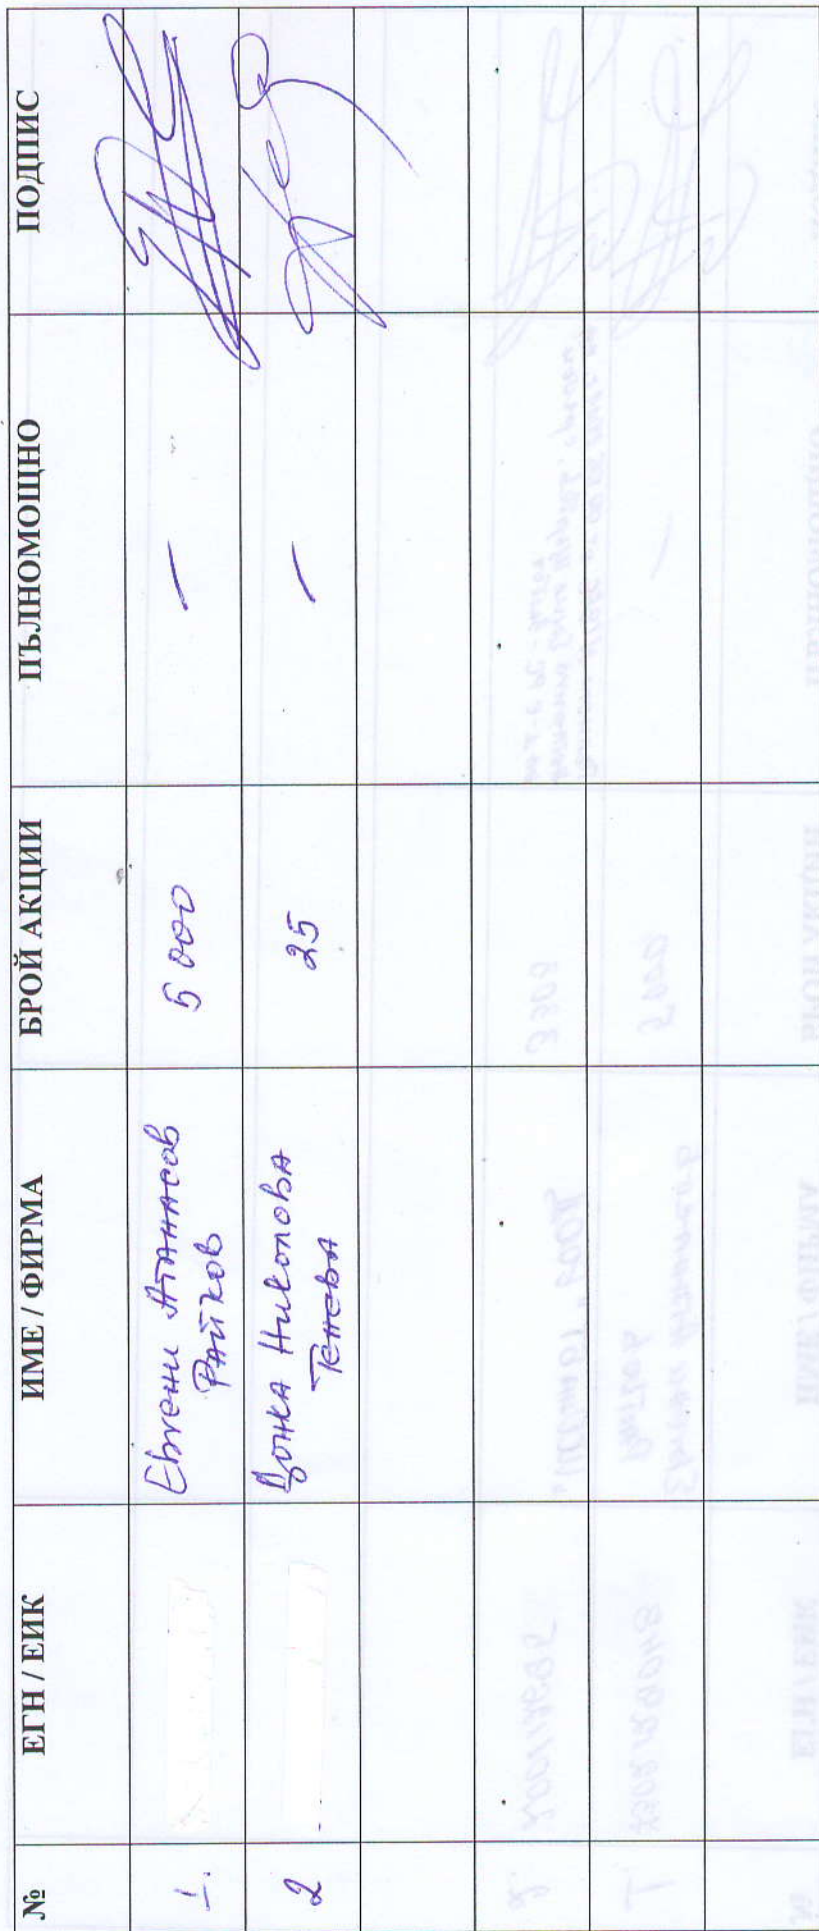 № ЕГН / ЕИК ИМЕ / ФИРМА БРОЙ АКЦИИ ПЪЛНОМОЩНО ПОДПИС
1. Евгени Атанасов 5 000 –
Райков
2 Цонка Николова 25 –
Тенева